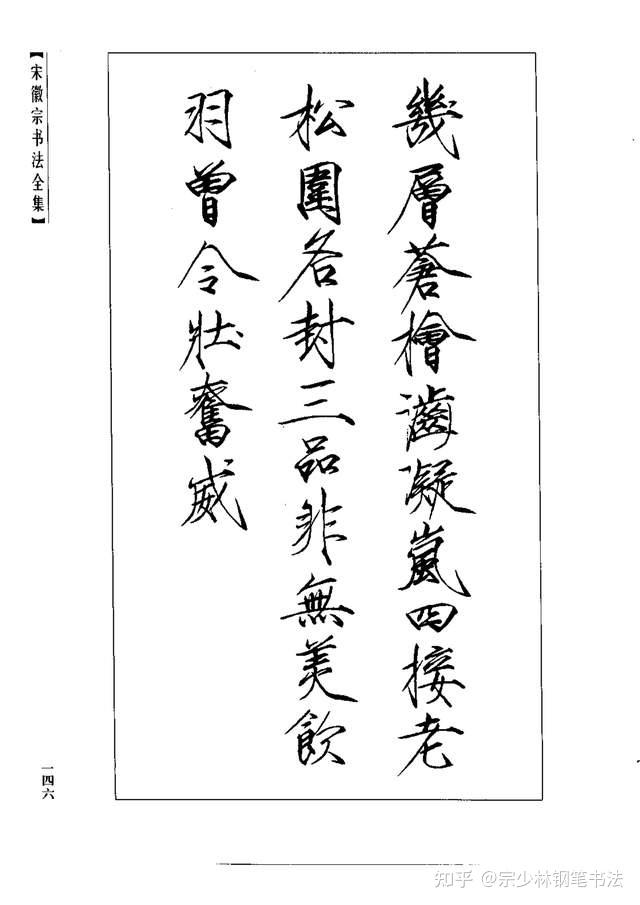 幾層蒼檜凝嵐四接老
松圍各封三品非無美飲
羽曾令壯奮威
【宋徽宗书法全集】
一四六
知乎 @宗少林钢笔书法